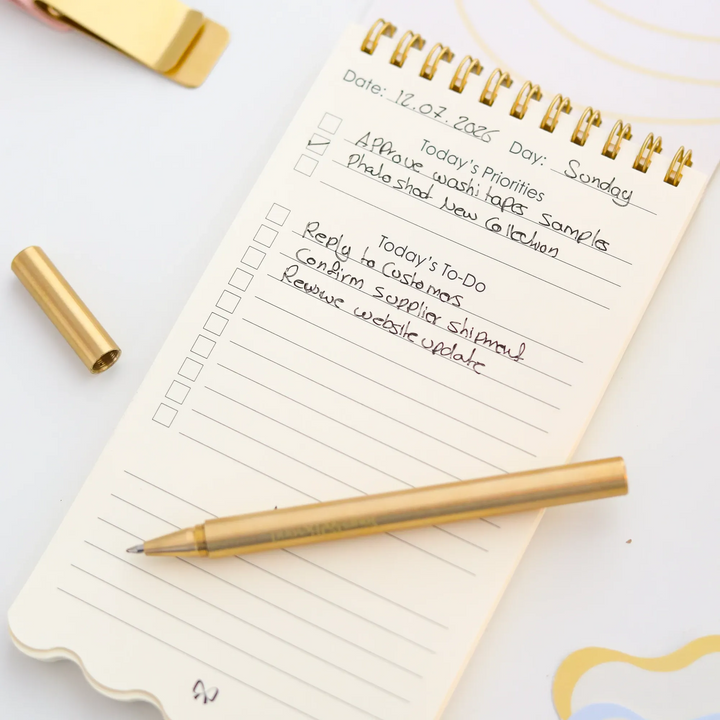 Date: 12.07.2026 Day: Sunday
Today's Priorities
Approve washi tapes Samples
Photo shoot New Collection
Today's To-Do
Reply to Customers
Confirm supplier shipment
website update